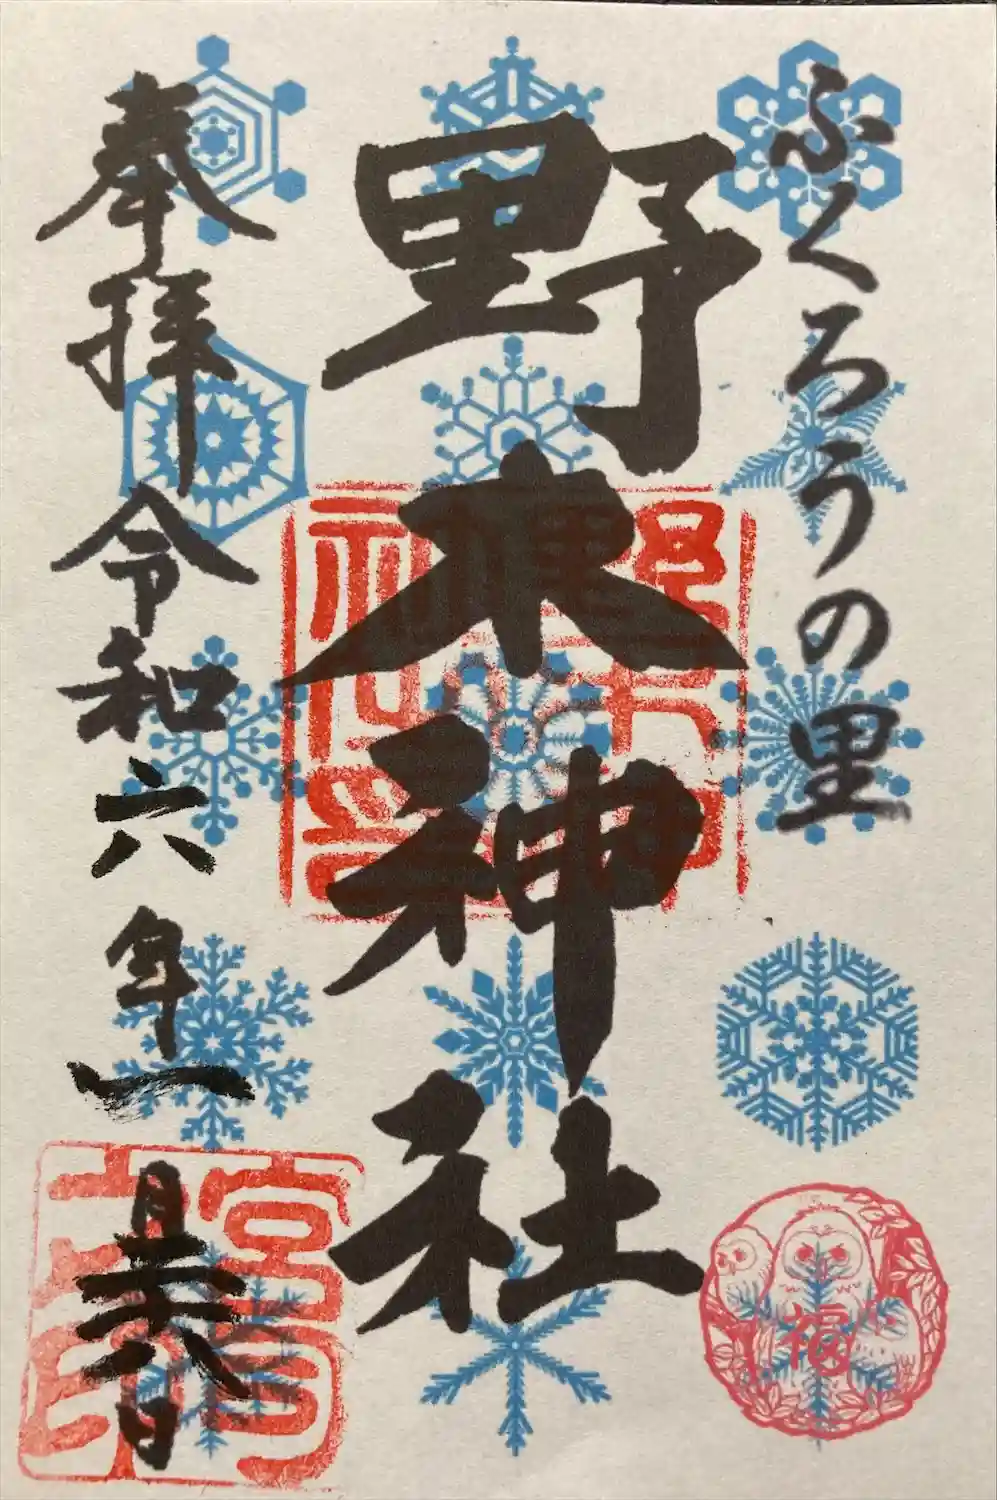 ふくろうの里
野木神社
奉拝 令和六年一月二十八日
宮司之印
福